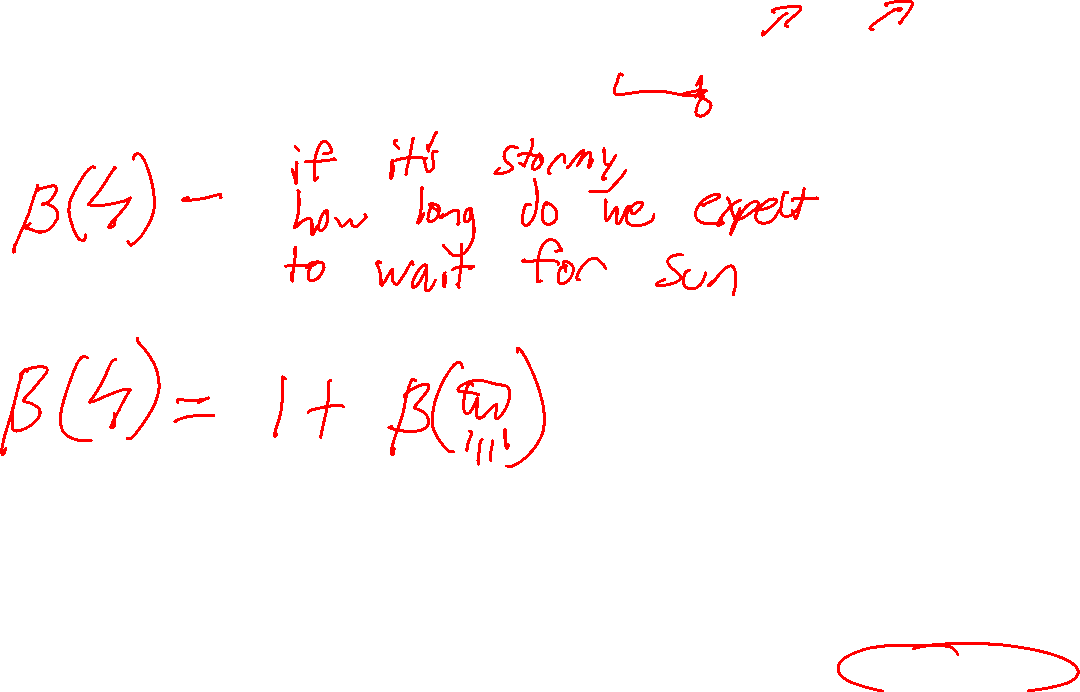 β(↯) - if it's stormy,
how long do we expect
to wait for sun
β(↯) = 1 + β(🌧)